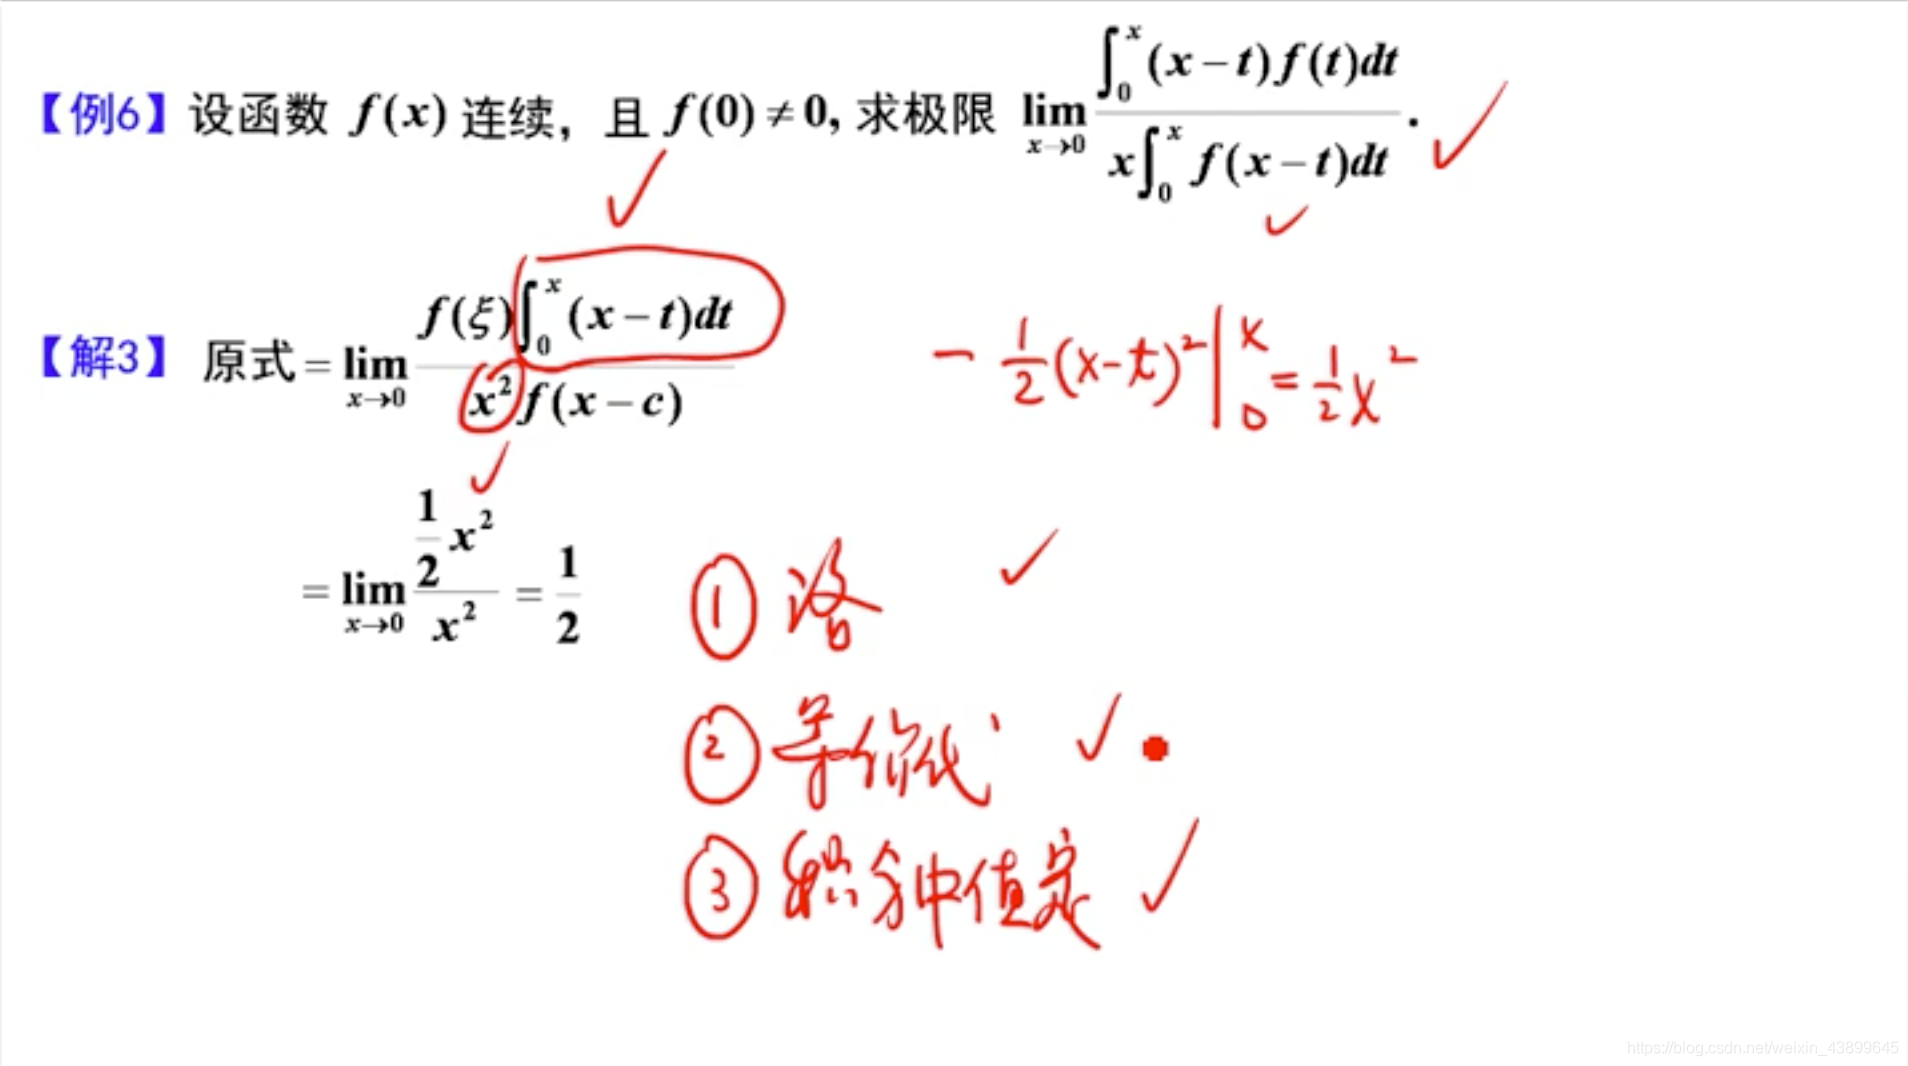 【例6】设函数 f(x) 连续，且 f(0) ≠ 0, 求极限 lim_{x→0} \frac{∫_0^x (x−t)f(t)dt}{x∫_0^x f(x−t)dt}.
【解3】 原式 = lim_{x→0} \frac{f(ξ)∫_0^x (x−t)dt}{x^2 f(x−c)}
− \frac{1}{2}(x−t)^2 |_0^x = \frac{1}{2}x^2
= lim_{x→0} \frac{\frac{1}{2}x^2}{x^2} = \frac{1}{2}
① 洛
② 等价代
③ 积分中值定
https://blog.csdn.net/weixin_43899645